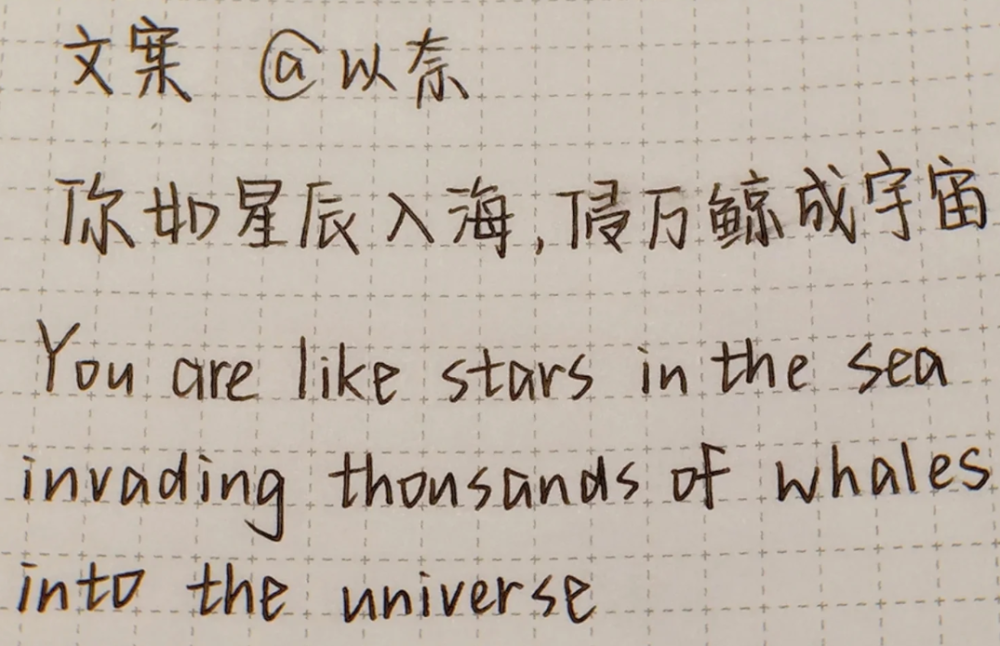 文案 @以奈
你如星辰入海,侵万鲸成宇宙
You are like stars in the sea
invading thousands of whales
into the universe